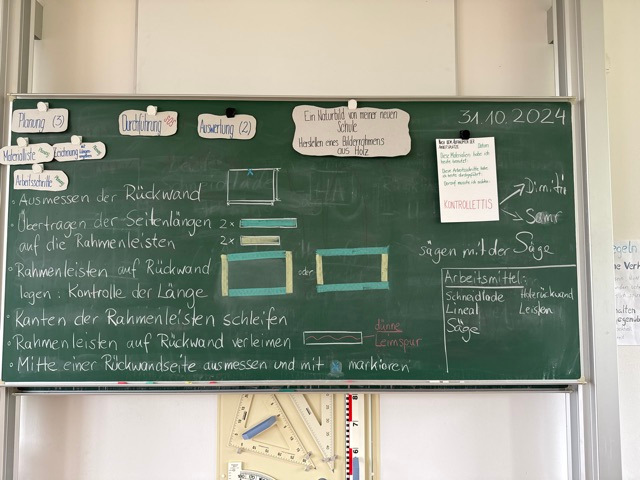 31.10.2024
Planung (3)
Durchführung
Auswertung (2)
Ein Naturbild von meiner neuen
Schule
Herstellen eines Bilderrahmens
aus Holz
Materialliste
Zeichnung
Arbeitsschritte
KONTROLLETTIS
Dimitri
• Ausmessen der Rückwand
• Übertragen der Seitenlängen
auf die Rahmenleisten
2x
2x
• Rahmenleisten auf Rückwand
legen: Kontrolle der Länge
oder
• Kanten der Rahmenleisten schleifen
• Rahmenleisten auf Rückwand verleimen
dünne
Leimspur
• Mitte einer Rückwandseite ausmessen und mit
markieren
sägen mit der Säge
Arbeitsmittel:
Schneidlade
Holzrückwand
Lineal
Leisten
Säge